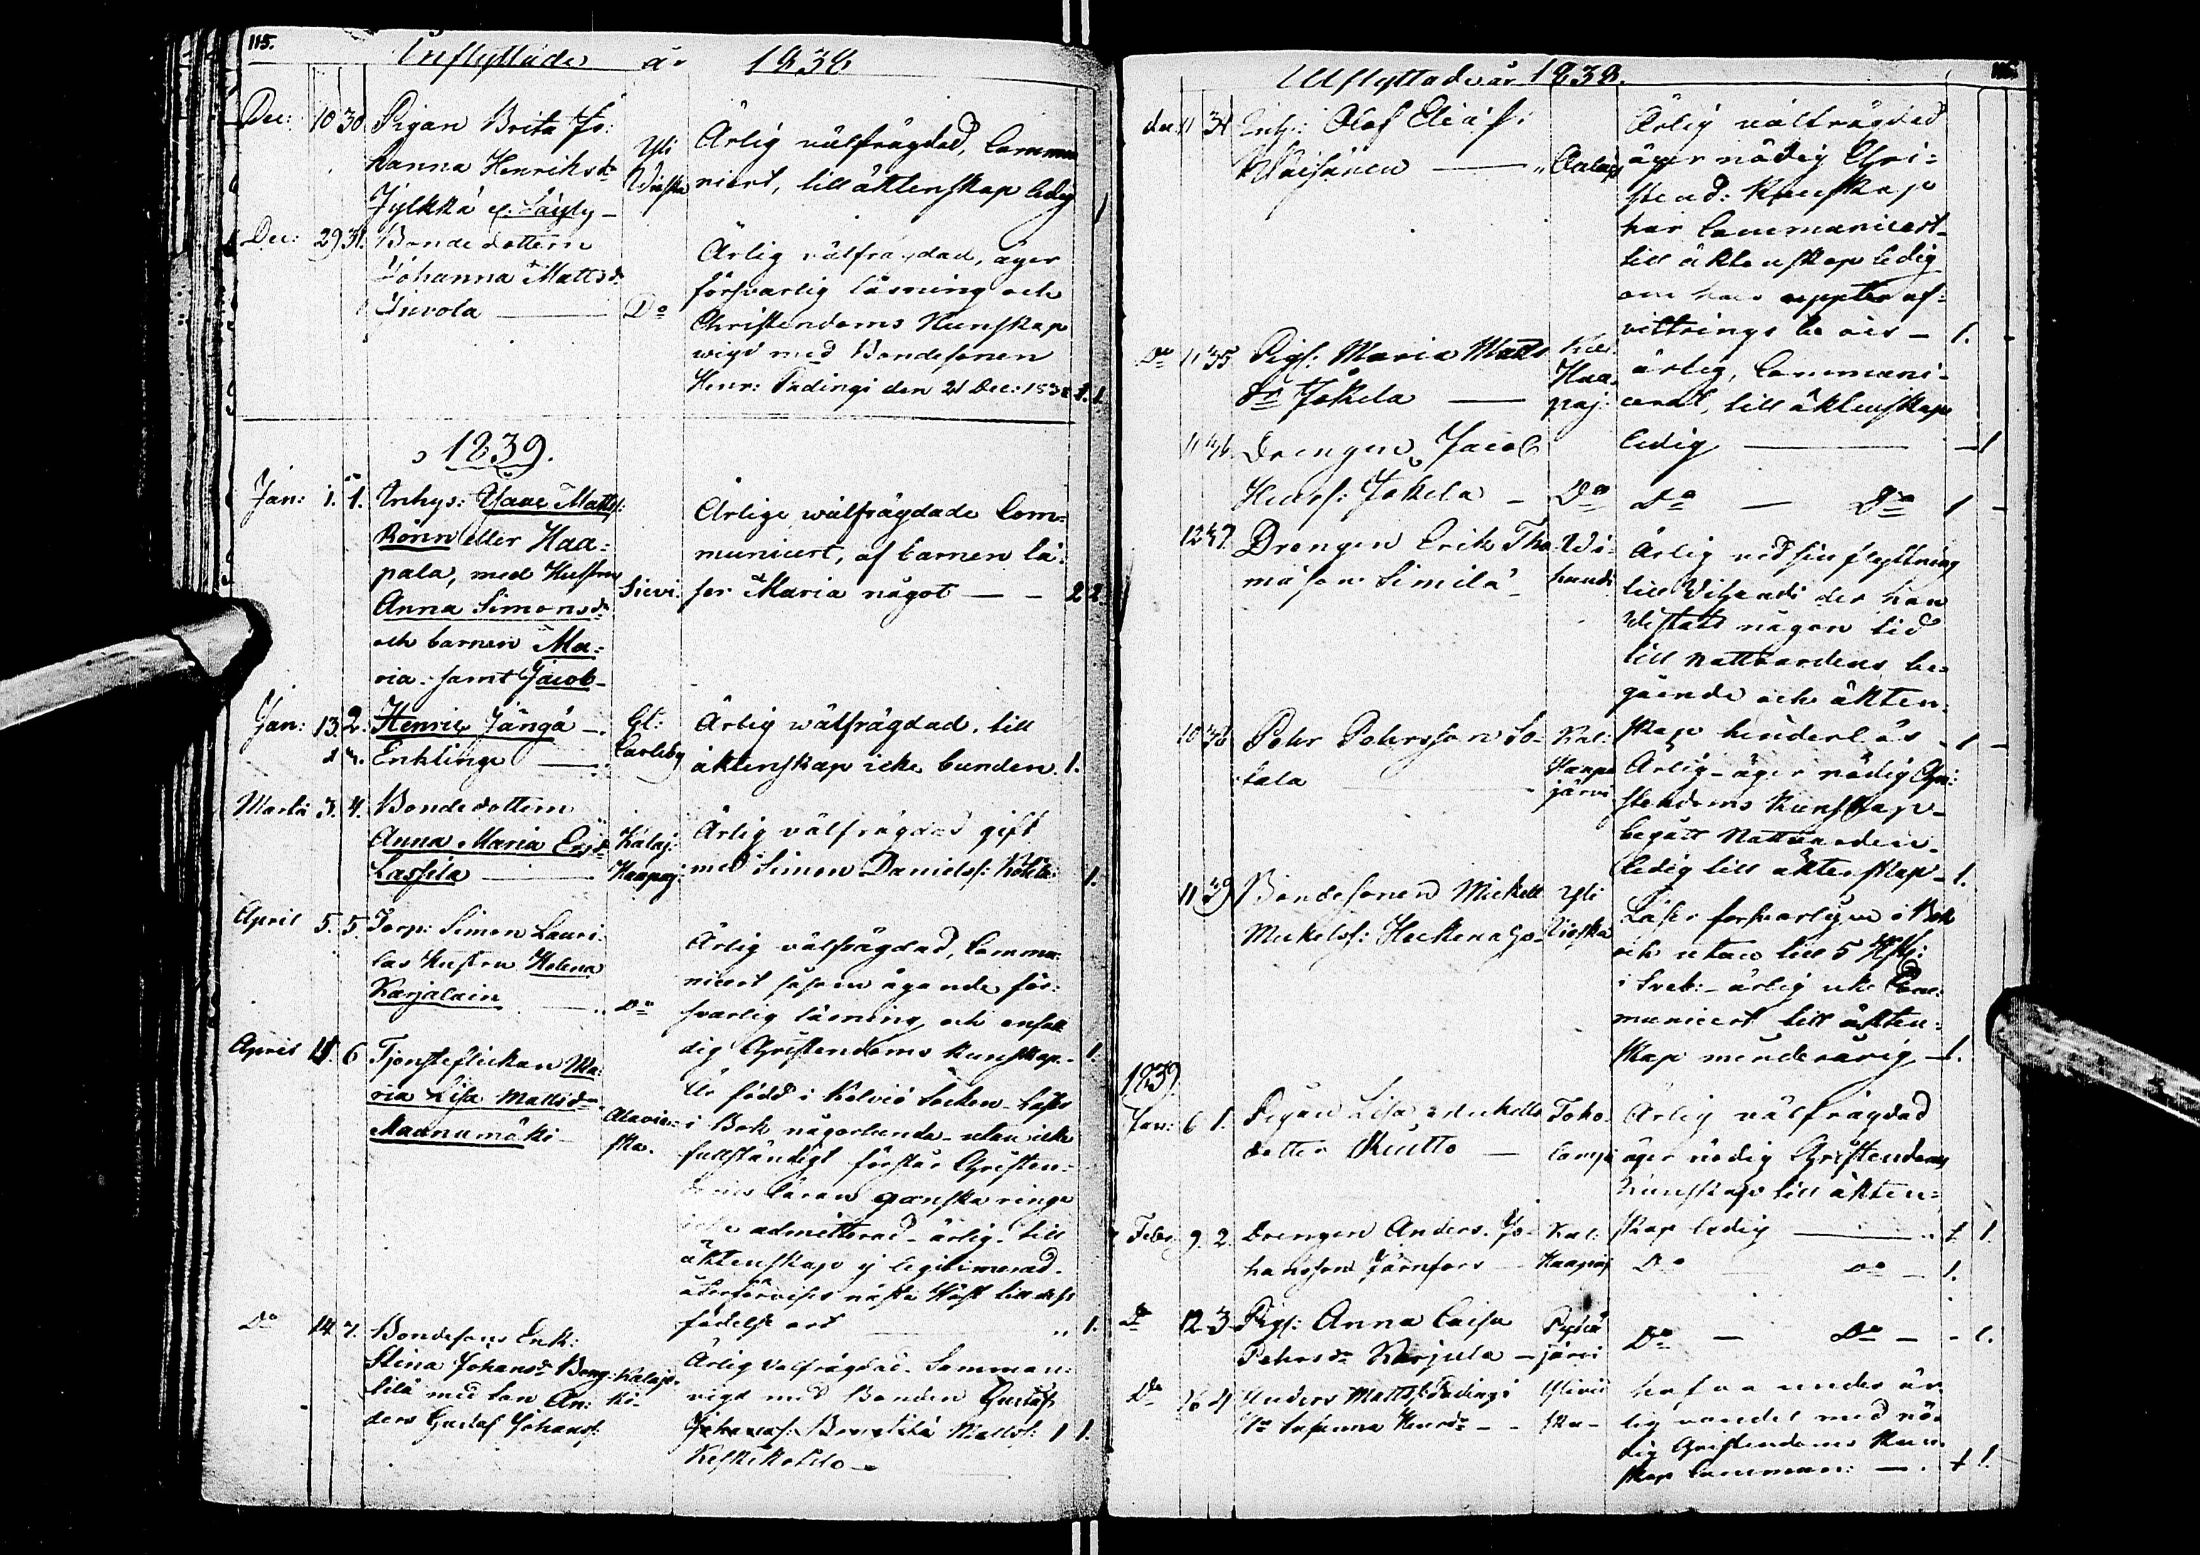 115.
Inflyttade år 1838
Dec: 10 30. Pigan Brita Jo:
hanna Henriksdr
Jylkkä
Yli
Wieska
Ärlig välfrägdad, Commu
nicert, till äktenskap ledig 1
Dec: 29 31. Bondedottern
Johanna Mattsdr
Juvola — Do
Ärlig välfrägdad, äger
försvarlig läsning och
Christendoms Kunskap
wigd med Bondesonen
Henr: Tadingi den 21 Dec: 1838 1.
1839.
Jan: 1. 1. Inhys: Isaac Mattss:
Rönn eller Haa=
pala, med Hustru
Anna Simonsdr
och barnen Ma=
ria samt Jacob
Sievi
Ärlige, wälfrägdade Com=
municert, af barnen lä:
ser Maria något — 2 2.
Jan: 13. 2. Henric Jängä
Enklinge —
Gl:
Carleby
Ärlig wälfrägdad, till
äktenskap icke bunden. 1.
Martii 3. 4. Bondedottern
Anna Maria Ersdr
Lassila —
Kalaj:
Haapaj:
Ärlig välfrägdad gift
med Simon Danielss: 1.
April 5. 5. Torp: Simon Lauri:
las Hustru Helena
Karjalain — Do
Ärlig välfrägdad, Commu
nicert såsom ägande för:
svarlig läsning och enfal
dig Christendoms kunskap 1.
April 6 Tjensteflickan Ma:
ria Lisa Mattsdr
Maanumäki
Alavie:
ska.
Är född i Kelviå Socken Läser
i Bok någorlunda utan icke
fullständigt förstår Christen=
doms läran ganska ringa
icke admitterad ärlig till
äktenskap ej legitimerad.
återförvises nästa Höst till dess
födelse ort 1.
Do 14 7. Bondesons Enk:
Stina Johansdr Bong:
tilä med son An:
ders Gustaf Johanss:
Kalajo:
ki
Ärlig välfrägdad Samman:
vigd med Bonden Gustaf
Johanss: Mattss: 1 1.
Keskitalo
Utflyttade år 1838.
dec 11 34 Inh: Olof Eliass:
Wäisänen — Kalaj
Ärlig välfrägdad
äger nödig Chri=
stend: Kunskap
har Communicert
till äktenskap ledig
om han uppter af:
vittrings bevis — 1.
Do 11 35 Pigs: Maria Matts
dr Jokela —
Kal:
Haa:
paj:
ärlig, Communi=
cerat, till äktenskap
ledig — 1
11 36. Drengen Jacob
Henrss: Jokela — Do Do — Do 1
12 37. Drengen Erik Tho
masson Similä
Wi:
handi
Ärlig vid sin flyttning
till Vihandi der han
vistats någon tid
till nattvardens be=
gående och äkten=
skap hinderlös — 1
10 38 Pehr Pehrsson So=
tala
Kal:
Haapa
järvi
Ärlig äger nödig Chri:
stendoms Kunskap
begått Nattvarden
ledig till äktenskap 1.
11 39 Bondesonen Mickell
Mickelss:
Yli
vieska
Läser försvarligen i Bok
och utan till 5 Hstj:
i Sveb: ärlig icke Com:
municert till äkten=
skap minderårig 1.
1839.
Jan: 6 1. Pigan Lisa Mickells
dotter Kuitto —
Toho:
lampi
Ärlig välfrägdad
äger nödig Christendoms
kunskap till äkten=
skap ledig — 1. 1.
Febr 9. 2. Drengen Anders Jo
hansson Jernfors
Kal:
Haapaj Do — Do — 1.
Do 12 3 Pigs: Anna Caisa
Pehrsdr Karjula
Pyhä
järvi Do — Do — 1.
Do 4 Anders Mattss: Tadingi
Hu Susanna Henrsdr
Ylivie
ska
hafva under är
lig vandel med nö:
dig Christendoms Kun
skap Commun: — 1 1.